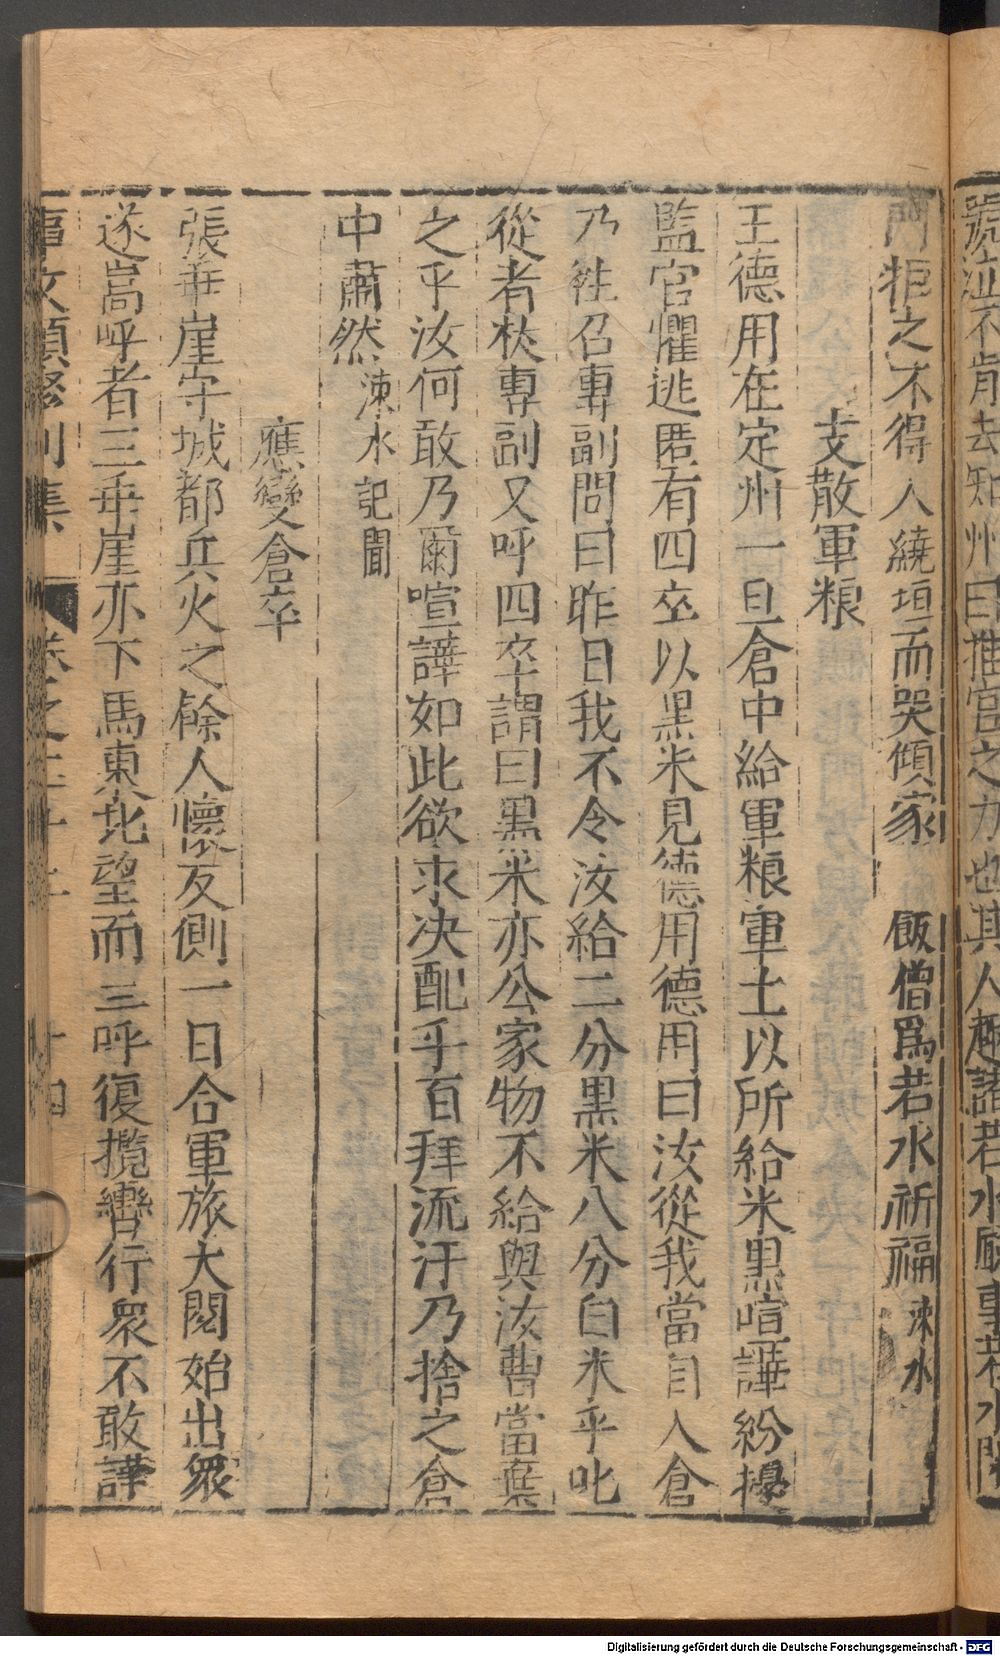 號泣不肯去知州曰推官之力也其人趨詣若水廳事若水閉
門拒之不得入繞垣而哭傾家飯僧爲若水祈福涑水
支散軍粮
王德用在定州一旦倉中給軍粮軍士以所給米黒喧譁紛擾
監官懼逃匿有四卒以黒米見德用德用曰汝從我當自入倉
乃徃召專副問曰昨日我不令汝給二分黒米八分白米乎叱
從者杖專副又呼四卒謂曰黒米亦公家物不給與汝曹當棄
之乎汝何敢乃爾喧譁如此欲求决配乎百拜流汗乃捨之倉
中肅然涑水記聞
應變倉卒
張垂崖守城都兵火之餘人懷反側一日合軍旅大閱始出衆
遂嵩呼者三垂崖亦下馬東北望而三呼復攬轡行衆不敢譁
事文類聚別集 卷之二十二 十四
Digitalisierung gefördert durch die Deutsche Forschungsgemeinschaft - DFG